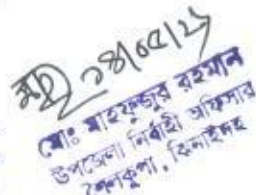 ১৪/০৫/২৫
মোঃ মাহফুজুর রহমান
উপজেলা নির্বাহী অফিসার
শৈলকুপা, ঝিনাইদহ